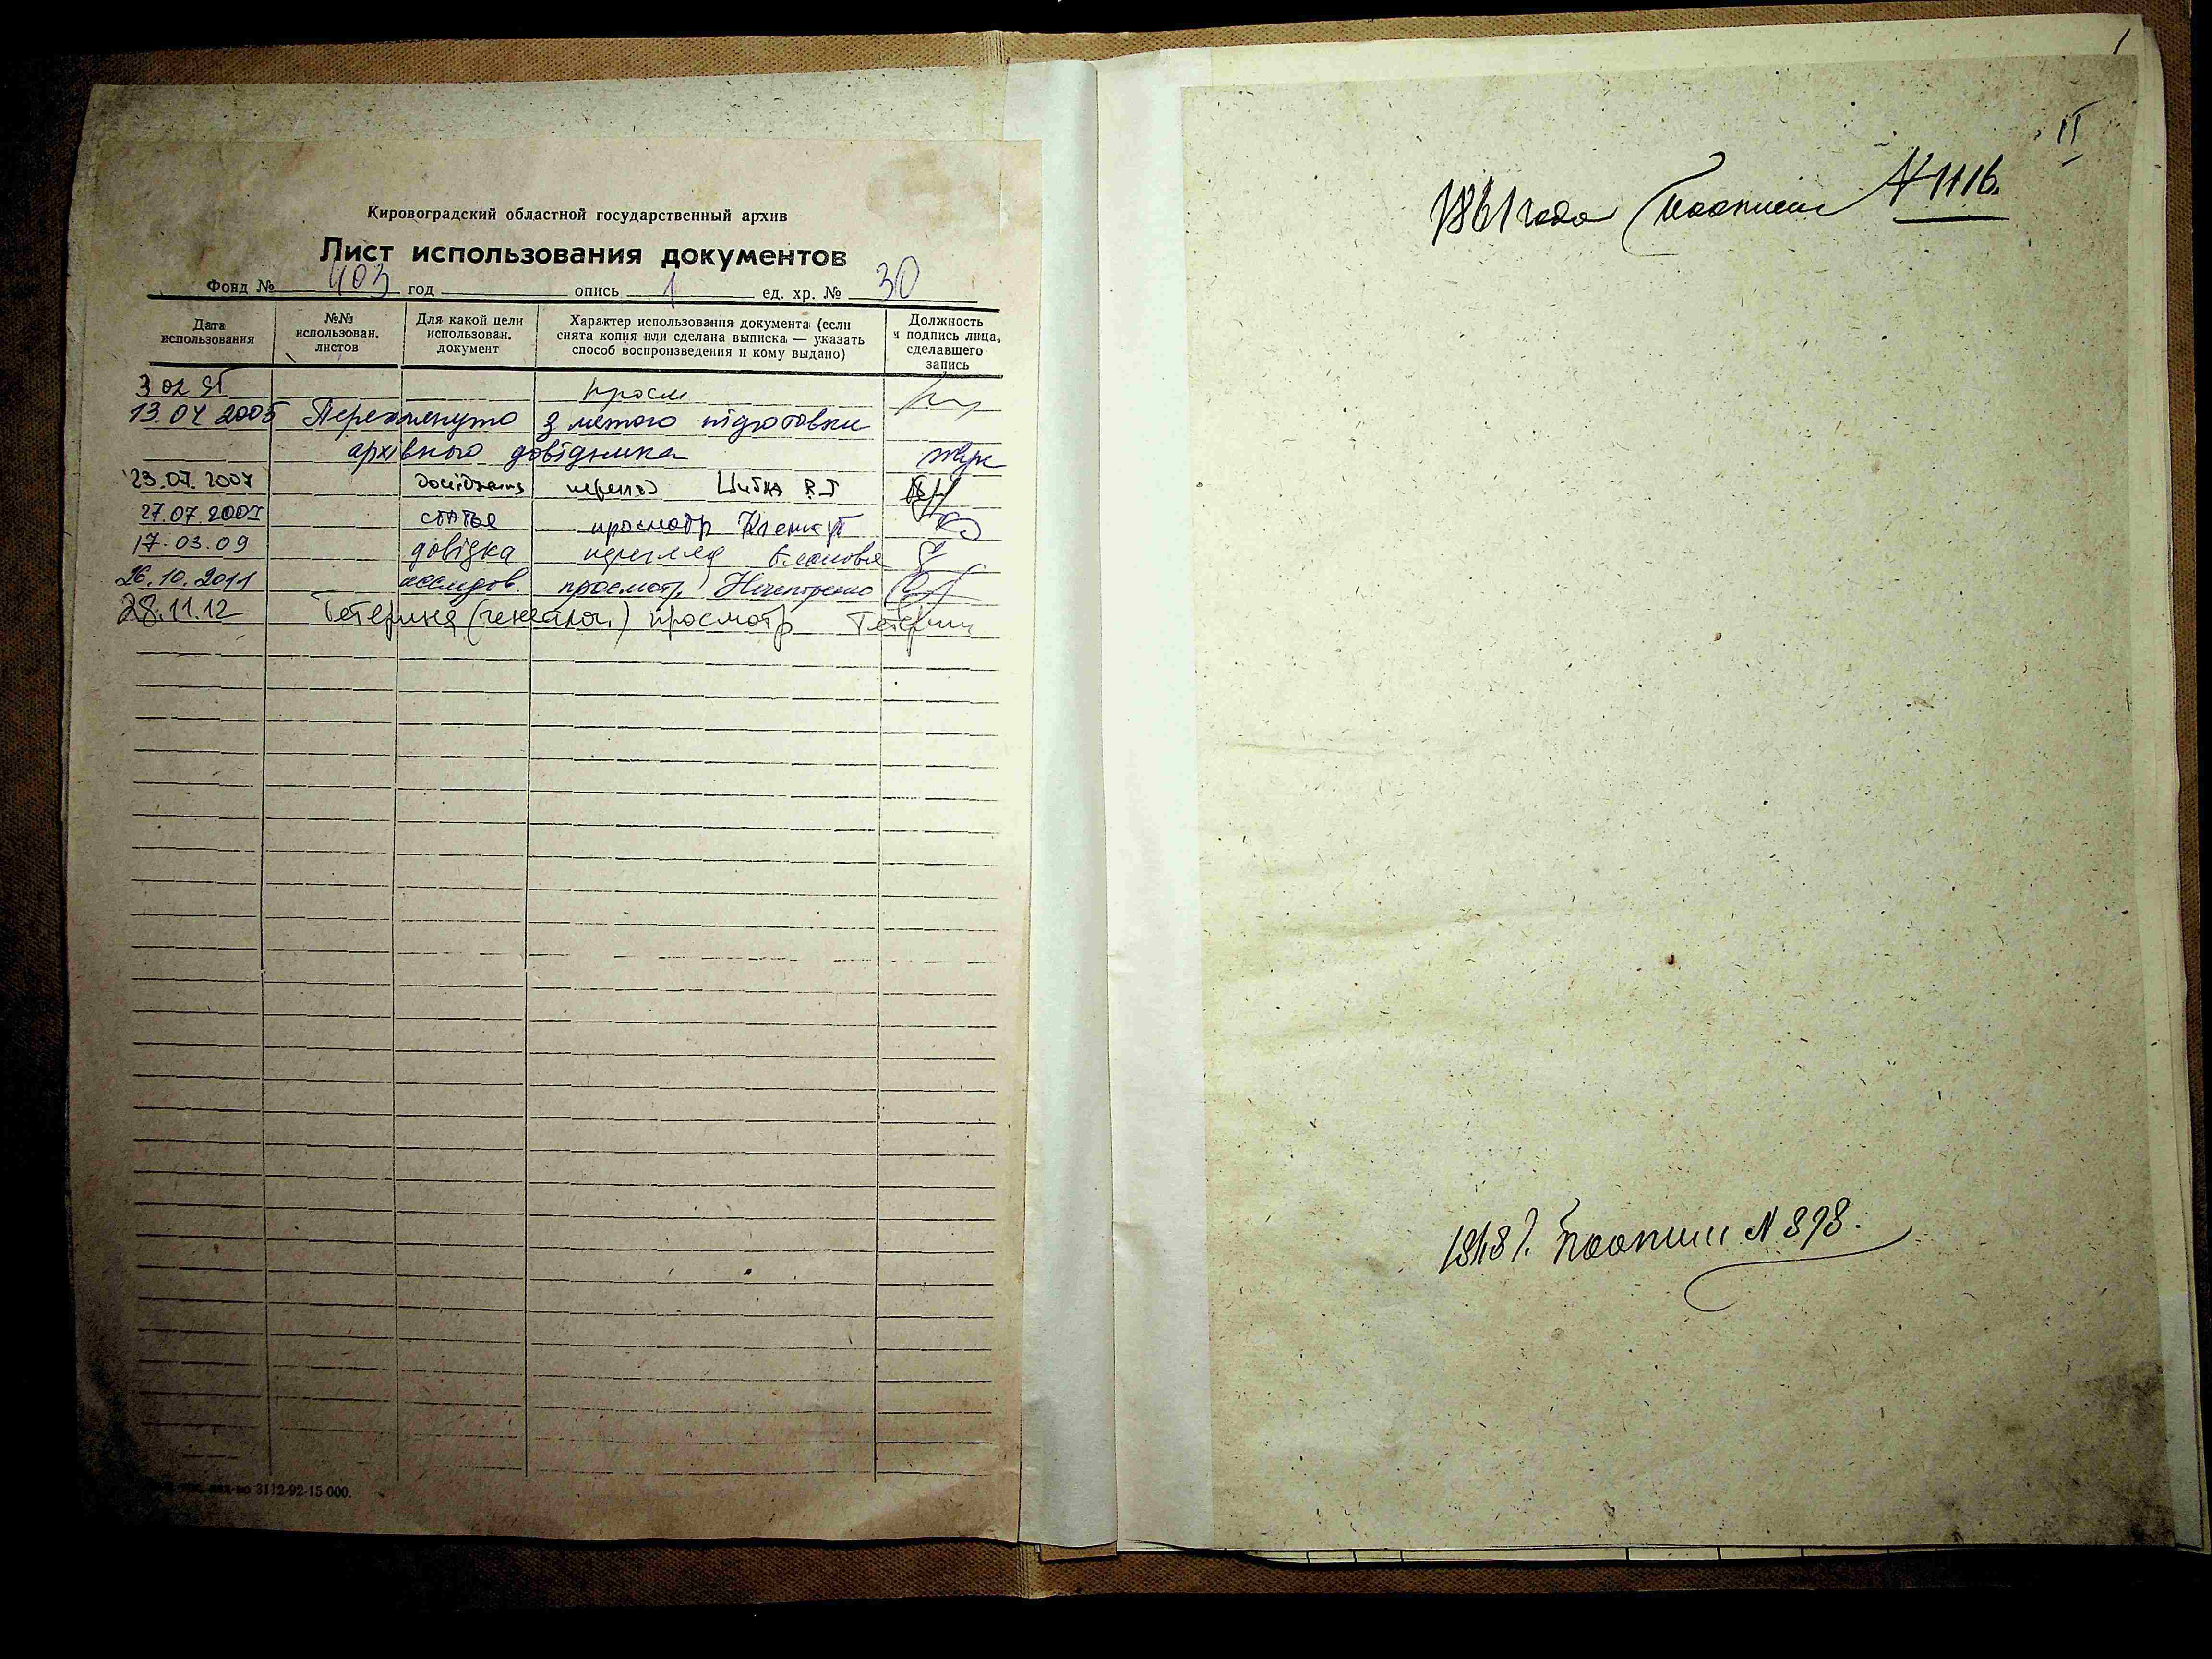 Кировоградский областной государственный архив
Лист использования документов
Фонд № 403 год опись 1 ед. хр. № 30
Дата использования
№№ использован. листов
Для какой цели использован. документ
Характер использования документа (если снята копия или сделана выписка — указать способ воспроизведения и кому выдано)
Должность и подпись лица, сделавшего запись
3 02 просм
13.04 2005 Переглянуто з метою підготовки
архівного довідника
23.07.2007 перегляд
27.07.2007 статья просмотр
17.03.09 довідка перегляд
26.10.2011 исследов. просмотр
28.11.12 Тетерина (генеалог.) просмотр
3112-92-15 000.
1
II
1861 года по описи N 1116.
1848 г. по описи N 898.